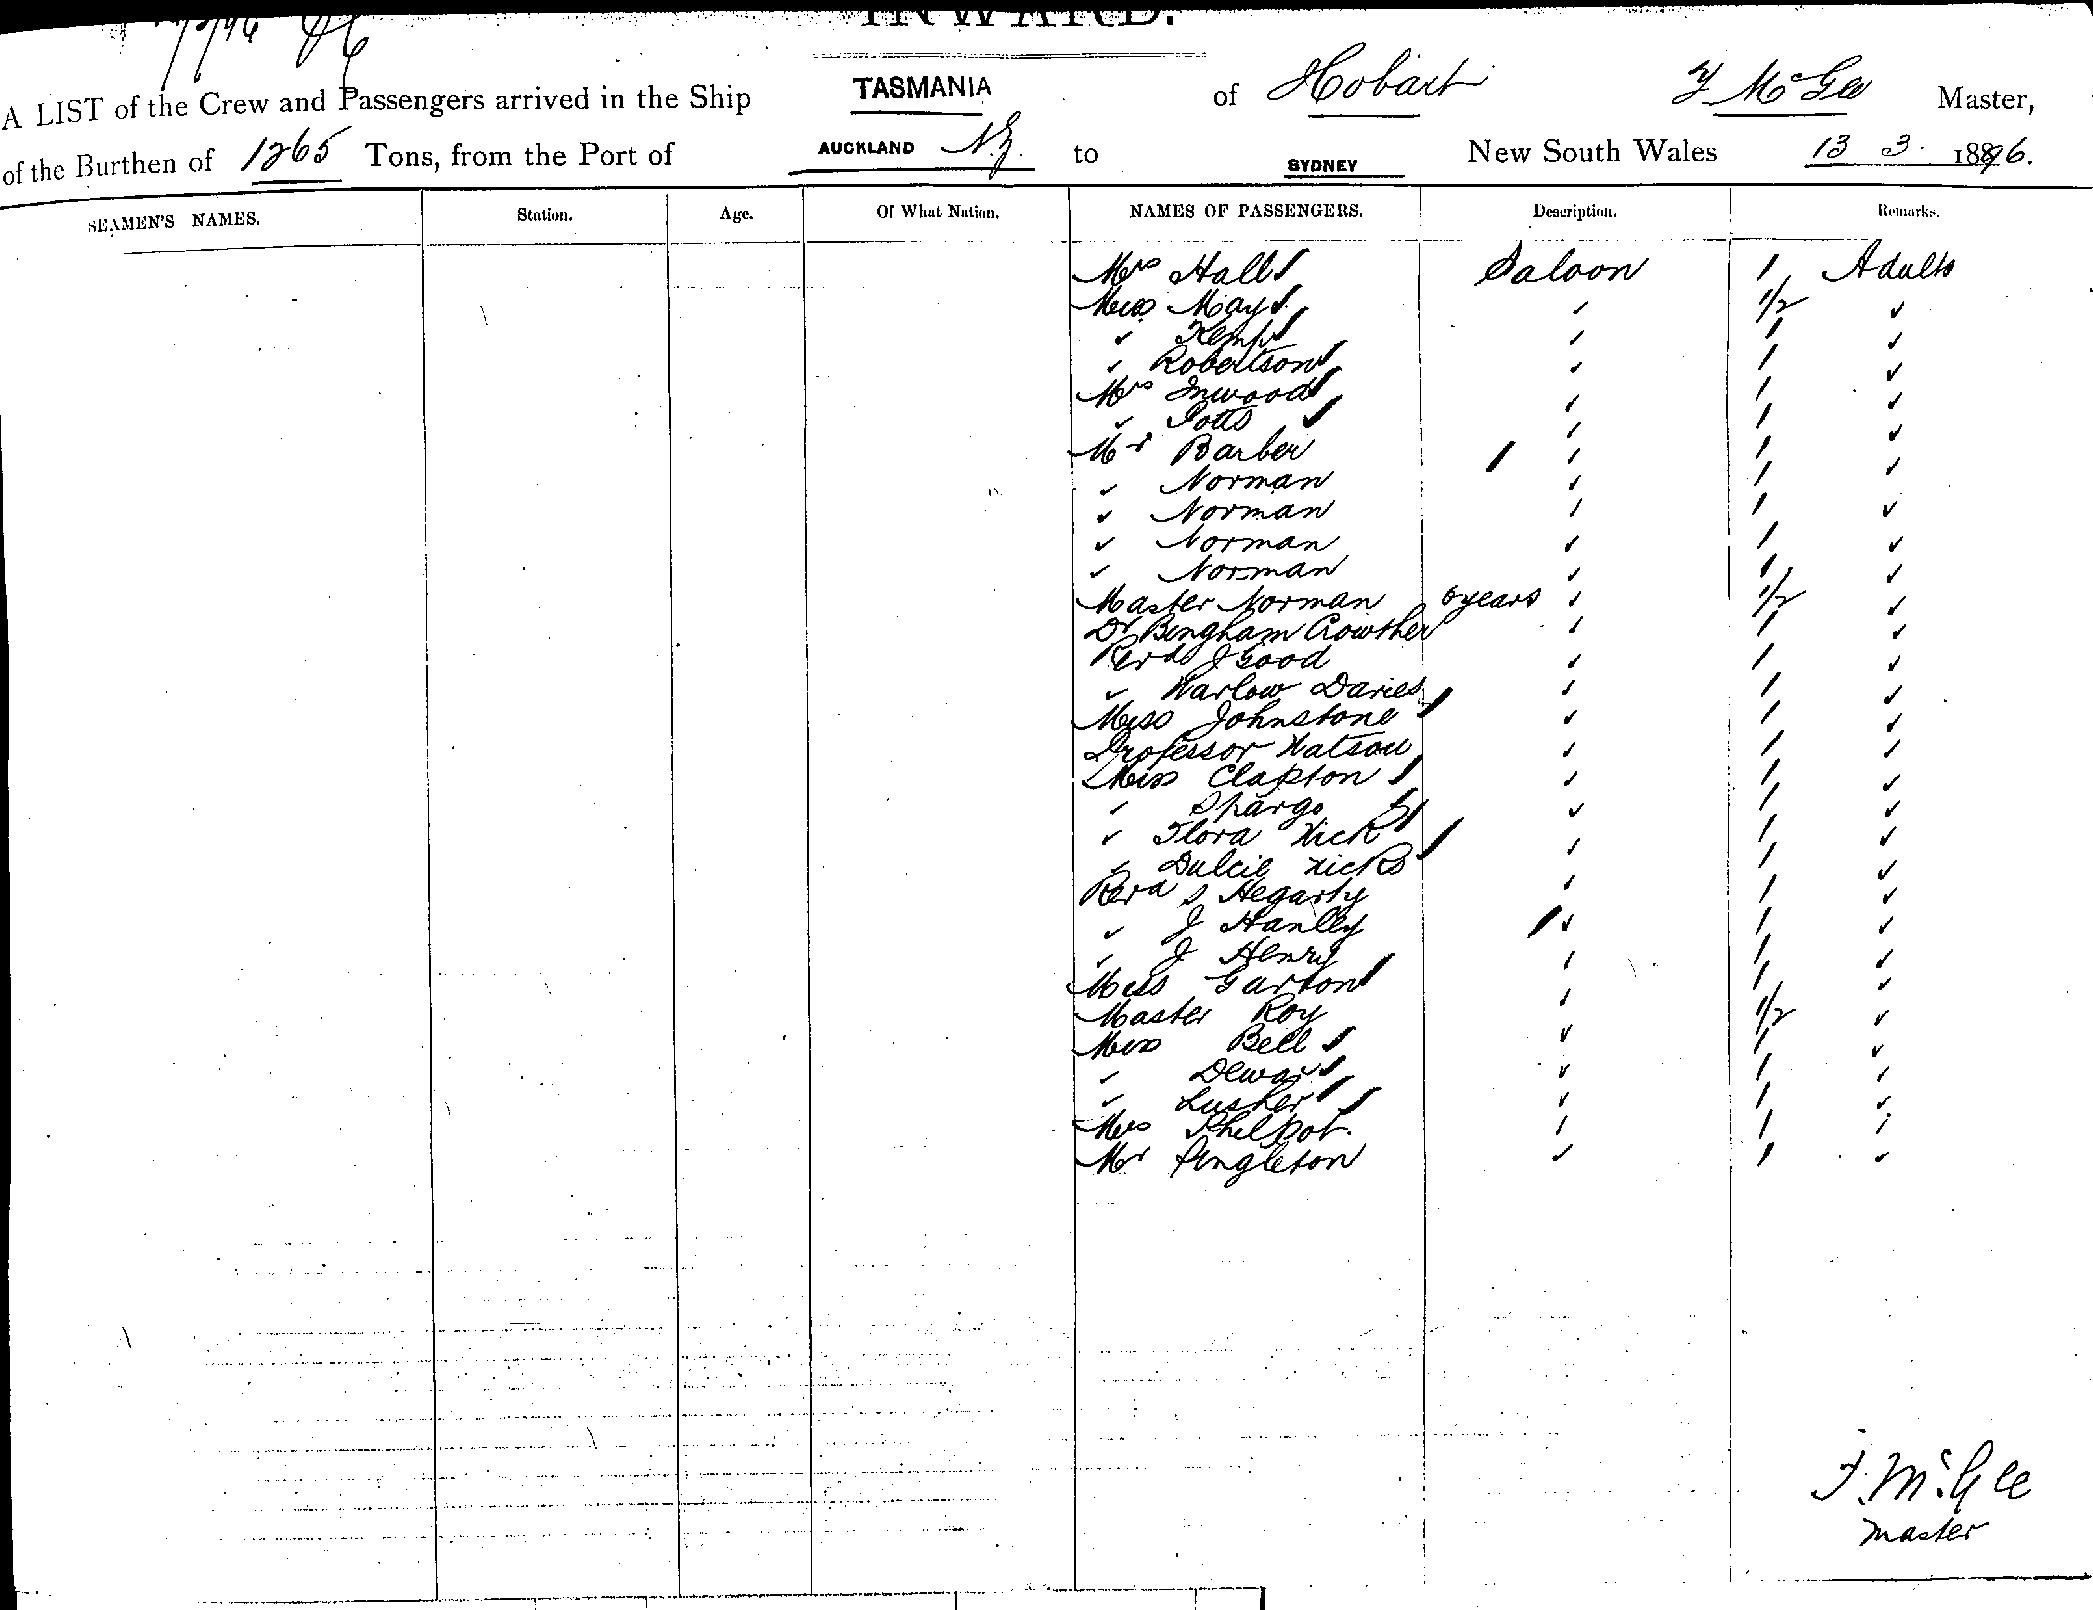 INWARD.
A LIST of the Crew and Passengers arrived in the Ship TASMANIA of Hobart F McGee Master,
of the Burthen of 1265 Tons, from the Port of AUCKLAND N.Z. to SYDNEY New South Wales 13 3. 1896.
SEAMEN'S NAMES. Station. Age. Of What Nation. NAMES OF PASSENGERS. Description. Remarks.
Mrs Hall Saloon 1 Adults
Miss May ✓ 1/2 ✓
✓ Kemp ✓ 1 ✓
✓ Robertson ✓ 1 ✓
Mrs Inwood ✓ 1 ✓
✓ Potts ✓ 1 ✓
Mr Barber ✓ 1 ✓
✓ Norman ✓ 1 ✓
✓ Norman ✓ 1 ✓
✓ Norman ✓ 1 ✓
✓ Norman ✓ 1 ✓
Master Norman 6 years ✓ 1/2 ✓
Dr Bingham Crowther ✓ 1 ✓
Revds J Good ✓ 1 ✓
✓ Warlow Davies ✓ 1 ✓
Miss Johnstone ✓ 1 ✓
Professor Watson ✓ 1 ✓
Miss Clapton ✓ 1 ✓
✓ Spargo ✓ 1 ✓
✓ Flora Hick ✓ 1 ✓
✓ Dulcie Hicks ✓ 1 ✓
Revd S Hegarty ✓ 1 ✓
✓ J Hanley ✓ 1 ✓
✓ J Henry ✓ 1 ✓
Miss Garton ✓ 1 ✓
Master Roy ✓ 1/2 ✓
Miss Bell ✓ 1 ✓
✓ Dewar ✓ 1 ✓
✓ Lusher ✓ 1 ✓
Mrs Philpot ✓ 1 ✓
Mr Singleton ✓ 1 ✓
F. McGee
Master